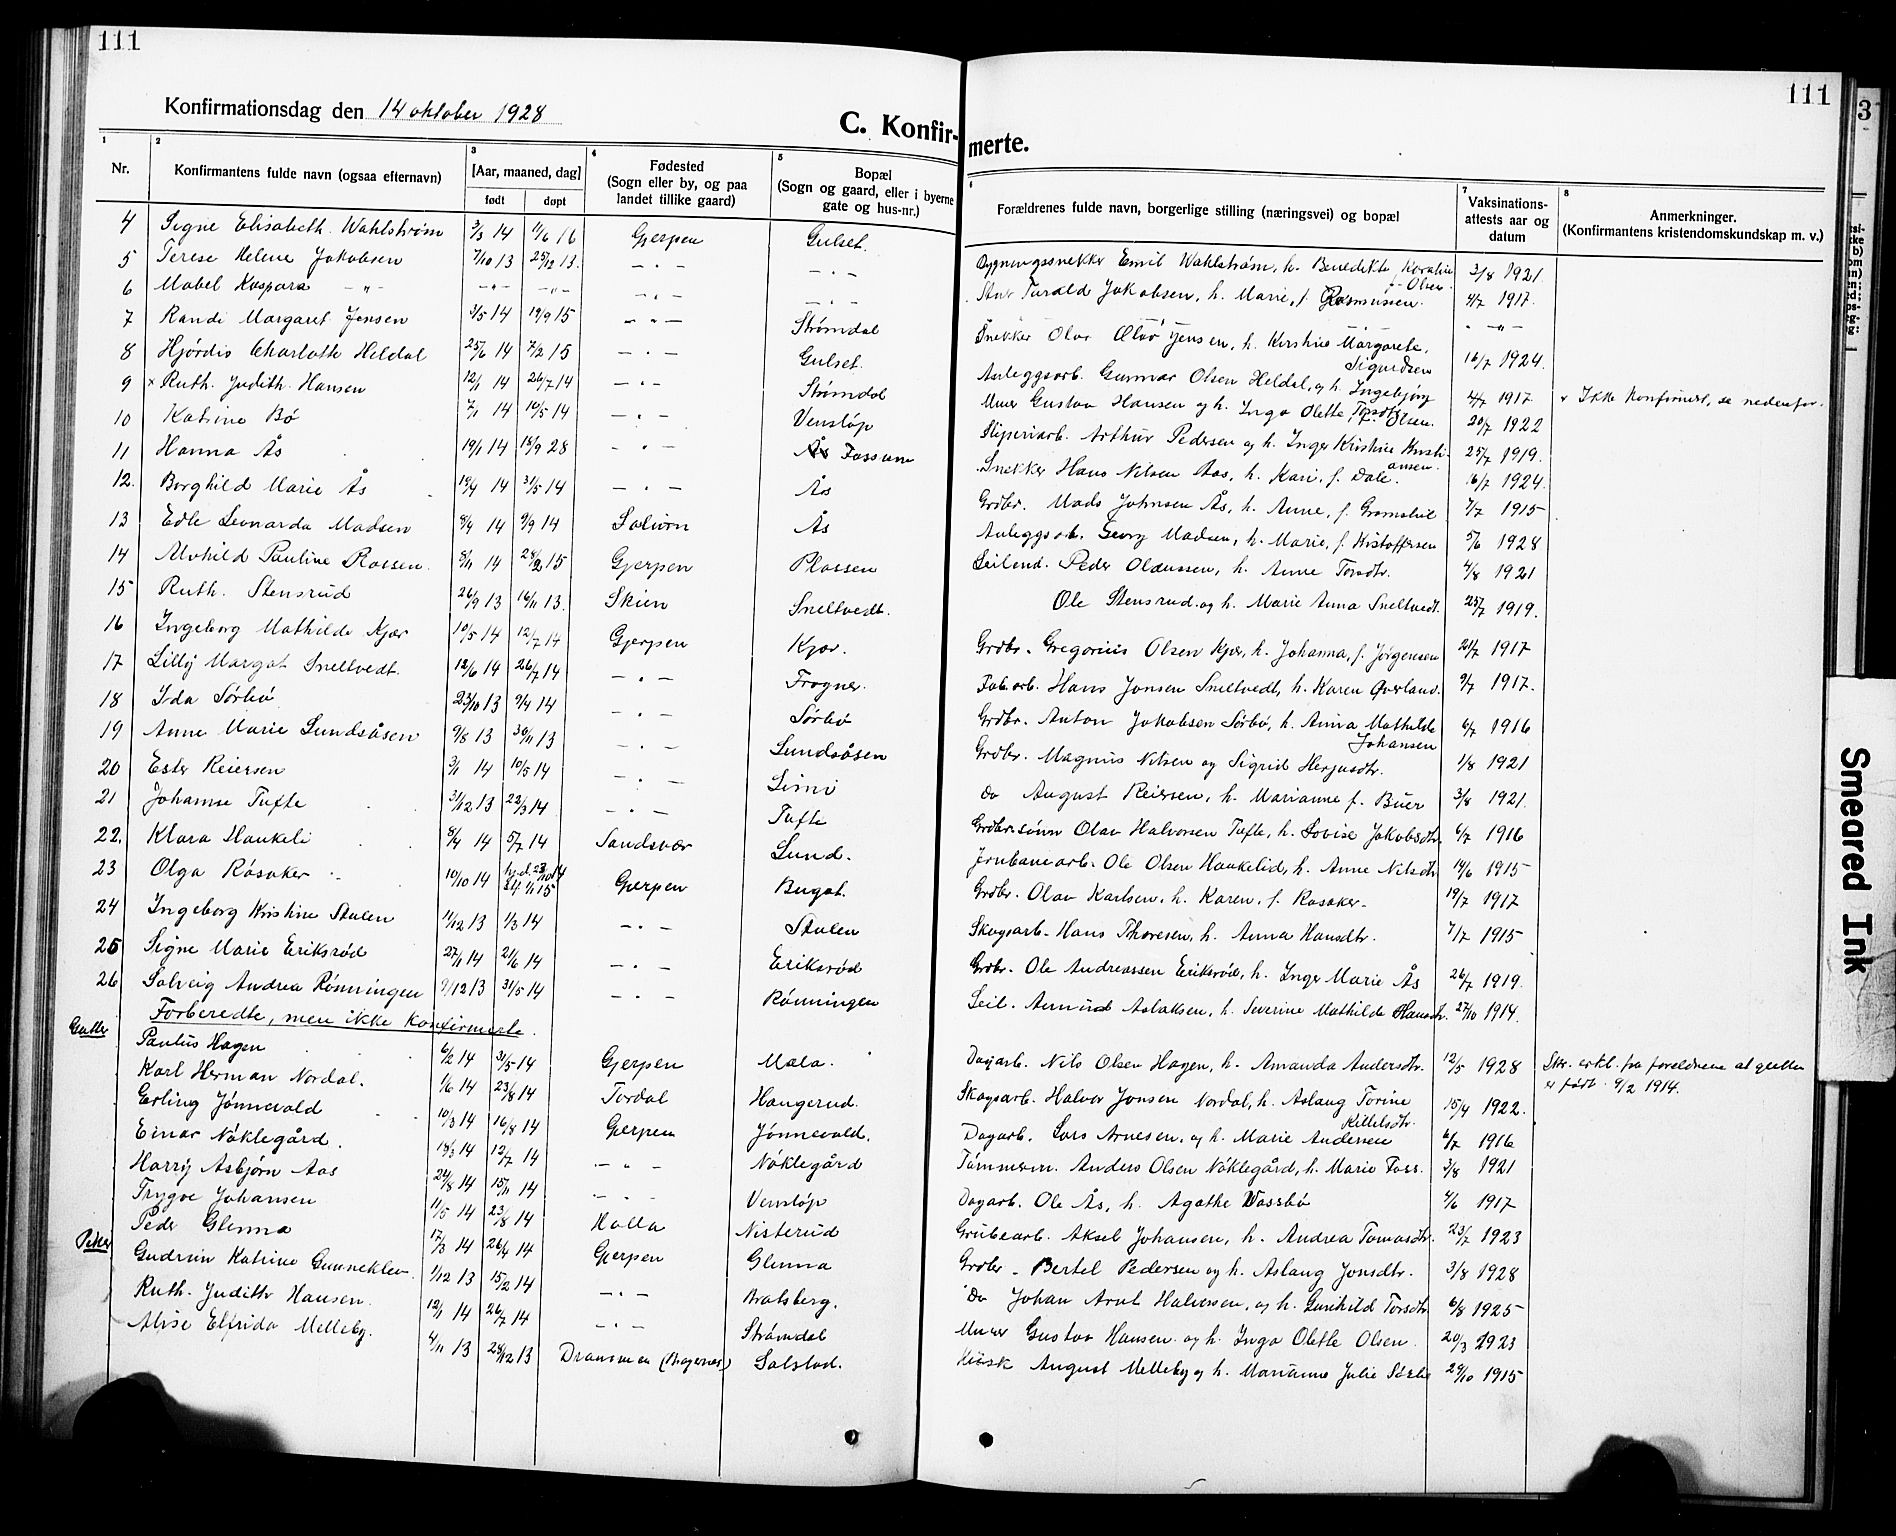 111
111
Konfirmationsdag den 14 oktober 1928
C. Konfir-
merte.
1 Nr.
2 Konfirmantens fulde navn (ogsaa efternavn)
3 [Aar, maaned, dag] født døpt
4 Fødested (Sogn eller by, og paa landet tillike gaard)
5 Bopæl (Sogn og gaard, eller i byerne gate og hus-nr.)
6 Forældrenes fulde navn, borgerlige stilling (næringsvei) og bopæl
7 Vaksinations-attests aar og datum
8 Anmerkninger. (Konfirmantens kristendomskundskap m. v.)
4 Signe Elisabeth Wahlstrøm 3/3 14 11/6 16 Gjerpen Gulset. Bygningssnekker Emil Wahlstrøm, h. Benedikte Karoline f. Olsen 3/8 1921.
5 Terese Helene Jakobsen 7/10 13 25/12 13. — . — — . — Turald Jakobsen, h. Marie, f. Rasmussen. 4/7 1917.
6 Mabel Kaspara — " — — " — — " — — . — — . — — " —
7 Randi Margaret Jensen 3/5 14 19/9 15 — . — Strømdal Snekker Olav Jensen, h. Kirstine Margarete Sigurdsen 16/7 1924.
8 Hjørdis Charlotte Heldal 25/6 14 7/2 15 — . — Gulset. Anleggsarb. Gunnar Olsen Heldal, og h. Ingebjørg Torsdtr. 4/7 1917
9 × Ruth Judith Hansen 12/1 14 26/7 14 — . — Strømdal Murer Gustav Hansen og h. Inga Olette Olsen. 20/7 1922 × Ikke konfirmert, se nedenfor.
10 Katrine Bø 7/1 14 10/5 14 — . — Venstøp Sliperiarb. Arthur Pedersen og h. Inger Kristine Kristiansen. 25/7 1919.
11 Hanna Ås 19/1 14 18/9 28 — . — Fossum Snekker Hans Nilsen Aas, h. Kari, f. Dale. 16/7 1924.
12. Borghild Marie Ås 19/4 14 31/5 14 — . — Ås Grdbr. Mads Johnsen Ås, h. Anne, f. Gromstul 7/7 1915
13 Edle Leonarda Madsen 8/4 14 9/9 14 Solum Ås Anleggsarb. Georg Madsen, h. Marie, f. Kristoffersen 5/6 1928
14 Alvhild Pauline Plassen. 8/11 14 28/2 15 Gjerpen Plassen Leilend. Peder Olaussen, h. Anne Torsdtr. 4/8 1921
15 Ruth Stensrud 26/9 13 16/11 13. Skien Sneltvedt. Ole Stensrud og h. Marie Anna Sneltvedt. 25/7 1919.
16 Ingeborg Mathilde Kjær 10/5 14 12/7 14 Gjerpen Kjær. Grdbr. Gregorius Olsen Kjær, h. Johanna, f. Jørgensen 21/7 1917
17 Lilly Margot Sneltvedt. 12/6 14 26/7 14 — . — Frogner. Fab.arb. Hans Jonsen Sneltvedt, h. Karen Øverland. 9/7 1917.
18 Ida Sørbø 23/10 13 9/4 14 — . — Sørbø Grdbr. Anton Jakobsen Sørbø, h. Anna Mathilde Johansen 6/7 1916
19 Anne Marie Sundsåsen 9/8 13 30/11 13 — . — Sundsåsen Grdbr. Magnus Nilsen og Sigrid Herjusdtr. 1/8 1921
20 Ester Reiersen 3/1 14 10/5 14 — . — Limi Do August Reiersen, h. Marianne f. Buer 3/8 1921.
21 Johanne Tufte 31/12 13 22/3 14 — . — Tufte Grdbr.sønn Olav Halvorsen Tufte, h. Lovise Jakobsdtr. 6/7 1916
22. Klara Haukeli 8/4 14 5/7 14 Sandsvær Lund. Jernbanearb. Ole Olsen Haukelid, h. Anne Nilsdtr. 14/6 1915
23 Olga Råsaker 10/10 14 hj.d. 23/10 14 st. 1/1 15 Gjerpen Bugst. Grdbr. Olav Karlsen, h. Karen, f. Rasaker 19/7 1917
24 Ingeborg Kristine Stulen 11/12 13 1/3 14 — . — Stulen Skogsarb. Hans Thoresen, h. Anna Hansdtr. 7/7 1915
25 Signe Marie Eriksrød 27/1 14 21/6 14 — . — Eriksrød Grdbr. Ole Andreassen Eriksrød, h. Inger Marie Ås 26/7 1919.
26 Solveig Andrea Rønningen 9/12 13 31/5 14 — . — Rønningen Leil. Aamund Aslaksen, h. Severine Mathilde Hansdtr. 27/10 1914.
Forberedte, men ikke konfirmerte.
Gutter
Paulus Hagen 6/2 14 31/5 14 Gjerpen Mæla. Dagarb. Nils Olsen Hagen, h. Amanda Andersdtr. 12/5 1928 Skr. erkl. fra foreldrene at gutten er født 9/2 1914.
Karl Herman Nordal. 1/6 14 23/8 14 Tordal Haugerud. Skogsarb. Halvor Jonsen Nordal, h. Aslaug Torine Killelsdtr. 15/4 1922.
Erling Jønnevald 10/3 14 16/8 14 Gjerpen Jønnevald. Dagarb. Lars Arnesen, og h. Marie Andersen 6/7 1916
Einar Nøklegård. 18/3 14 12/7 14 — " — Nøklegård Tømmerm. Anders Olsen Nøklegård, h. Marie Foss. 3/8 1921
Harry Asbjørn Aas 24/8 14 15/11 14 — . — Venstøp Dagarb. Ole Ås, h. Agathe Vassbø 4/6 1917
Trygve Johansen 11/5 14 23/8 14 Holla Nisterud Grubearb. Aksel Johansen, h. Andrea Tomasdtr. 23/7 1923
Peder Glenna 17/3 14 26/4 14 Gjerpen Glenna Grdbr. Bertel Pedersen og h. Aslaug Jonsdtr. 3/8 1928
Piker
Gudrun Katrine Gunneklev. 1/12 13 15/2 14 — . — Bratsberg. Do Johan Arnt Halvorsen, og h. Gunhild Torsdtr. 6/8 1925
Ruth Judith Hansen. 12/1 14 26/7 14 — . — Strømdal Murer Gustav Hansen og h. Inga Olette Olsen. 20/3 1923
Alise Elfrida Melleby. 4/11 13 28/12 13 Drammen (Bragernes) Solstad. August Melleby og h. Marianne Julie 29/10 1915
Smeared Ink
3